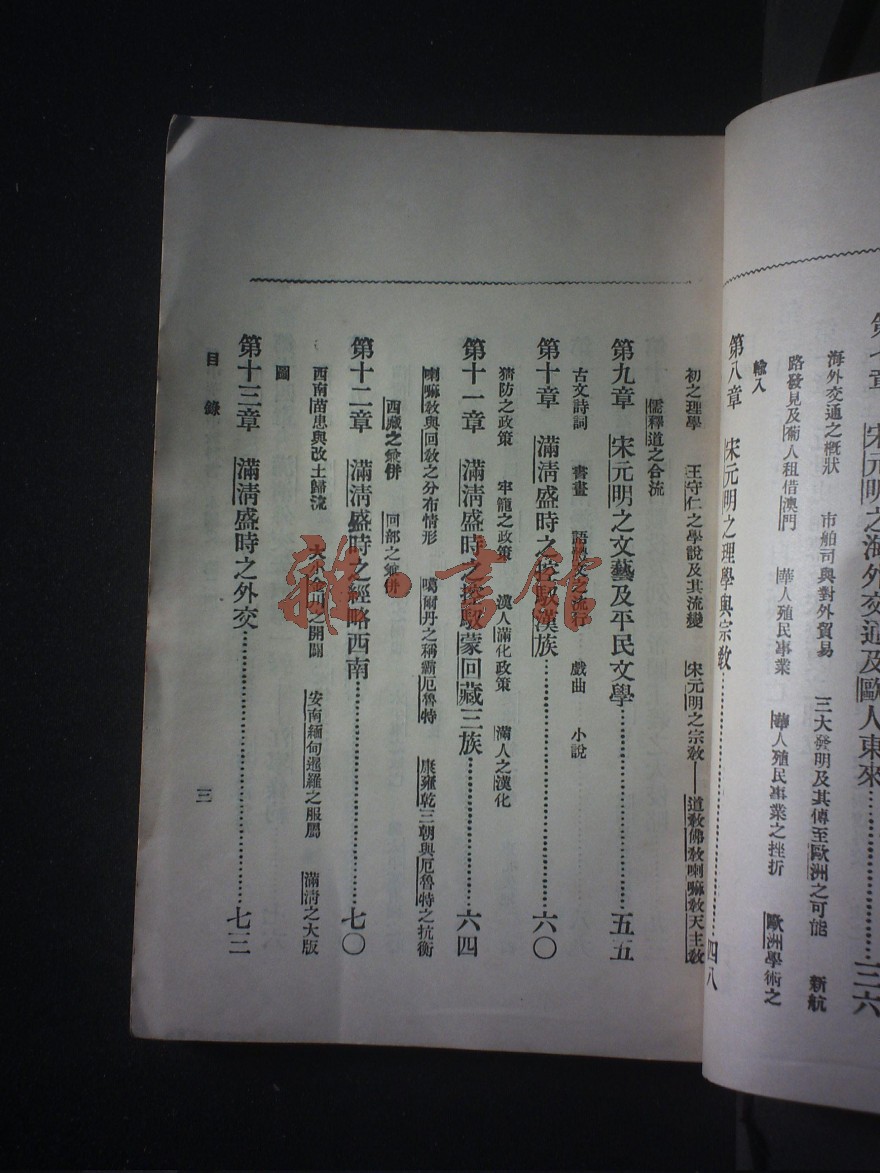 宋元明之海外交通及歐人東來……三六
海外交通之概狀　市舶司與對外貿易　三大發明及其傳至歐洲之可能　新航
路發見及葡人租借澳門　華人殖民事業　華人殖民事業之挫折　歐洲學術之
輸入
第八章　宋元明之理學與宗教……四八
初之理學　王守仁之學說及其流變　宋元明之宗教——道教佛教喇嘛教天主教
儒釋道之合流
第九章　宋元明之文藝及平民文學……五五
古文詩詞　書畫　語體文之流行　戲曲　小說
第十章　滿清盛時之控馭漢族……六〇
猜防之政策　牢籠之政策　漢人滿化政策　滿人之漢化
第十一章　滿清盛時之控馭蒙回藏三族……六四
喇嘛教與回教之分布情形　噶爾丹之稱霸厄魯特　康雍乾三朝與厄魯特之抗衡
西藏之兼併　回部之兼併
第十二章　滿清盛時之經略西南……七〇
西南苗患與改土歸流　大小金川之開闢　安南緬甸暹羅之服屬　滿清之大版
圖
第十三章　滿清盛時之外交……七三
目錄　三
雜·書館